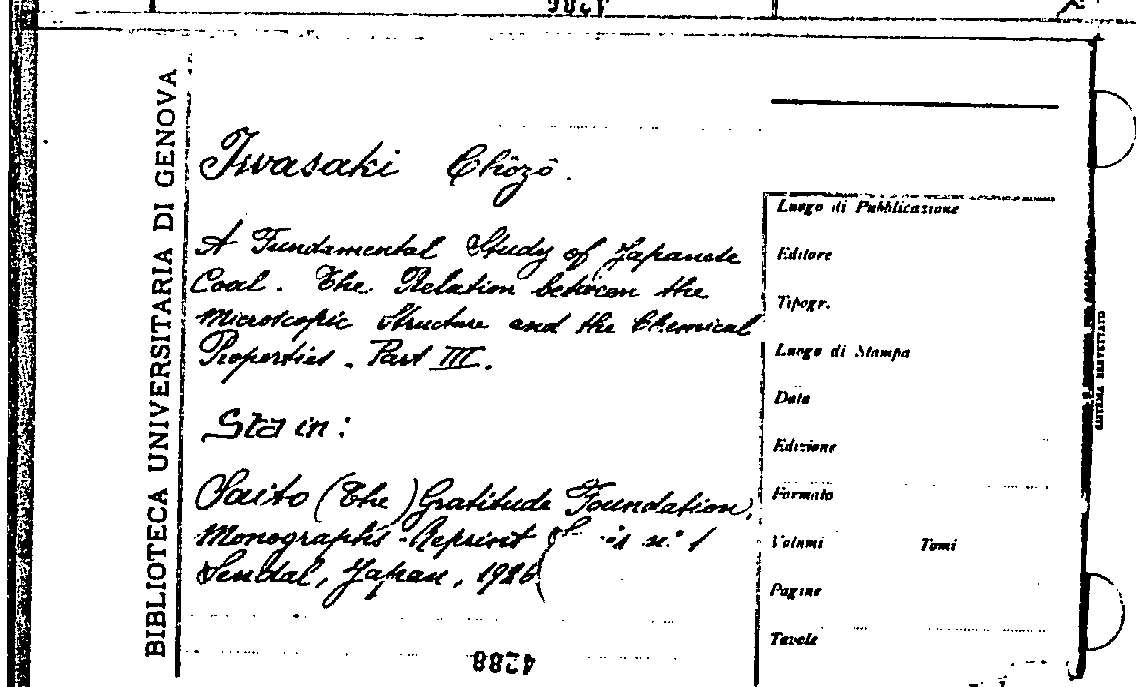 BIBLIOTECA UNIVERSITARIA DI GENOVA
Iwasaki Chōzō.
A Fundamental Study of Japanese
Coal. The Relation between the
Microscopic Structure and the Chemical
Properties. Part III.
Sta in:
Saito (The) Gratitude Foundation,
Monographs. Reprint n. 1
Sendai, Japan, 1926
Luogo di Pubblicazione
Editore
Tipogr.
Luogo di Stampa
Data
Edizione
Formato
Volumi Tomi
Pagine
Tavole
4288